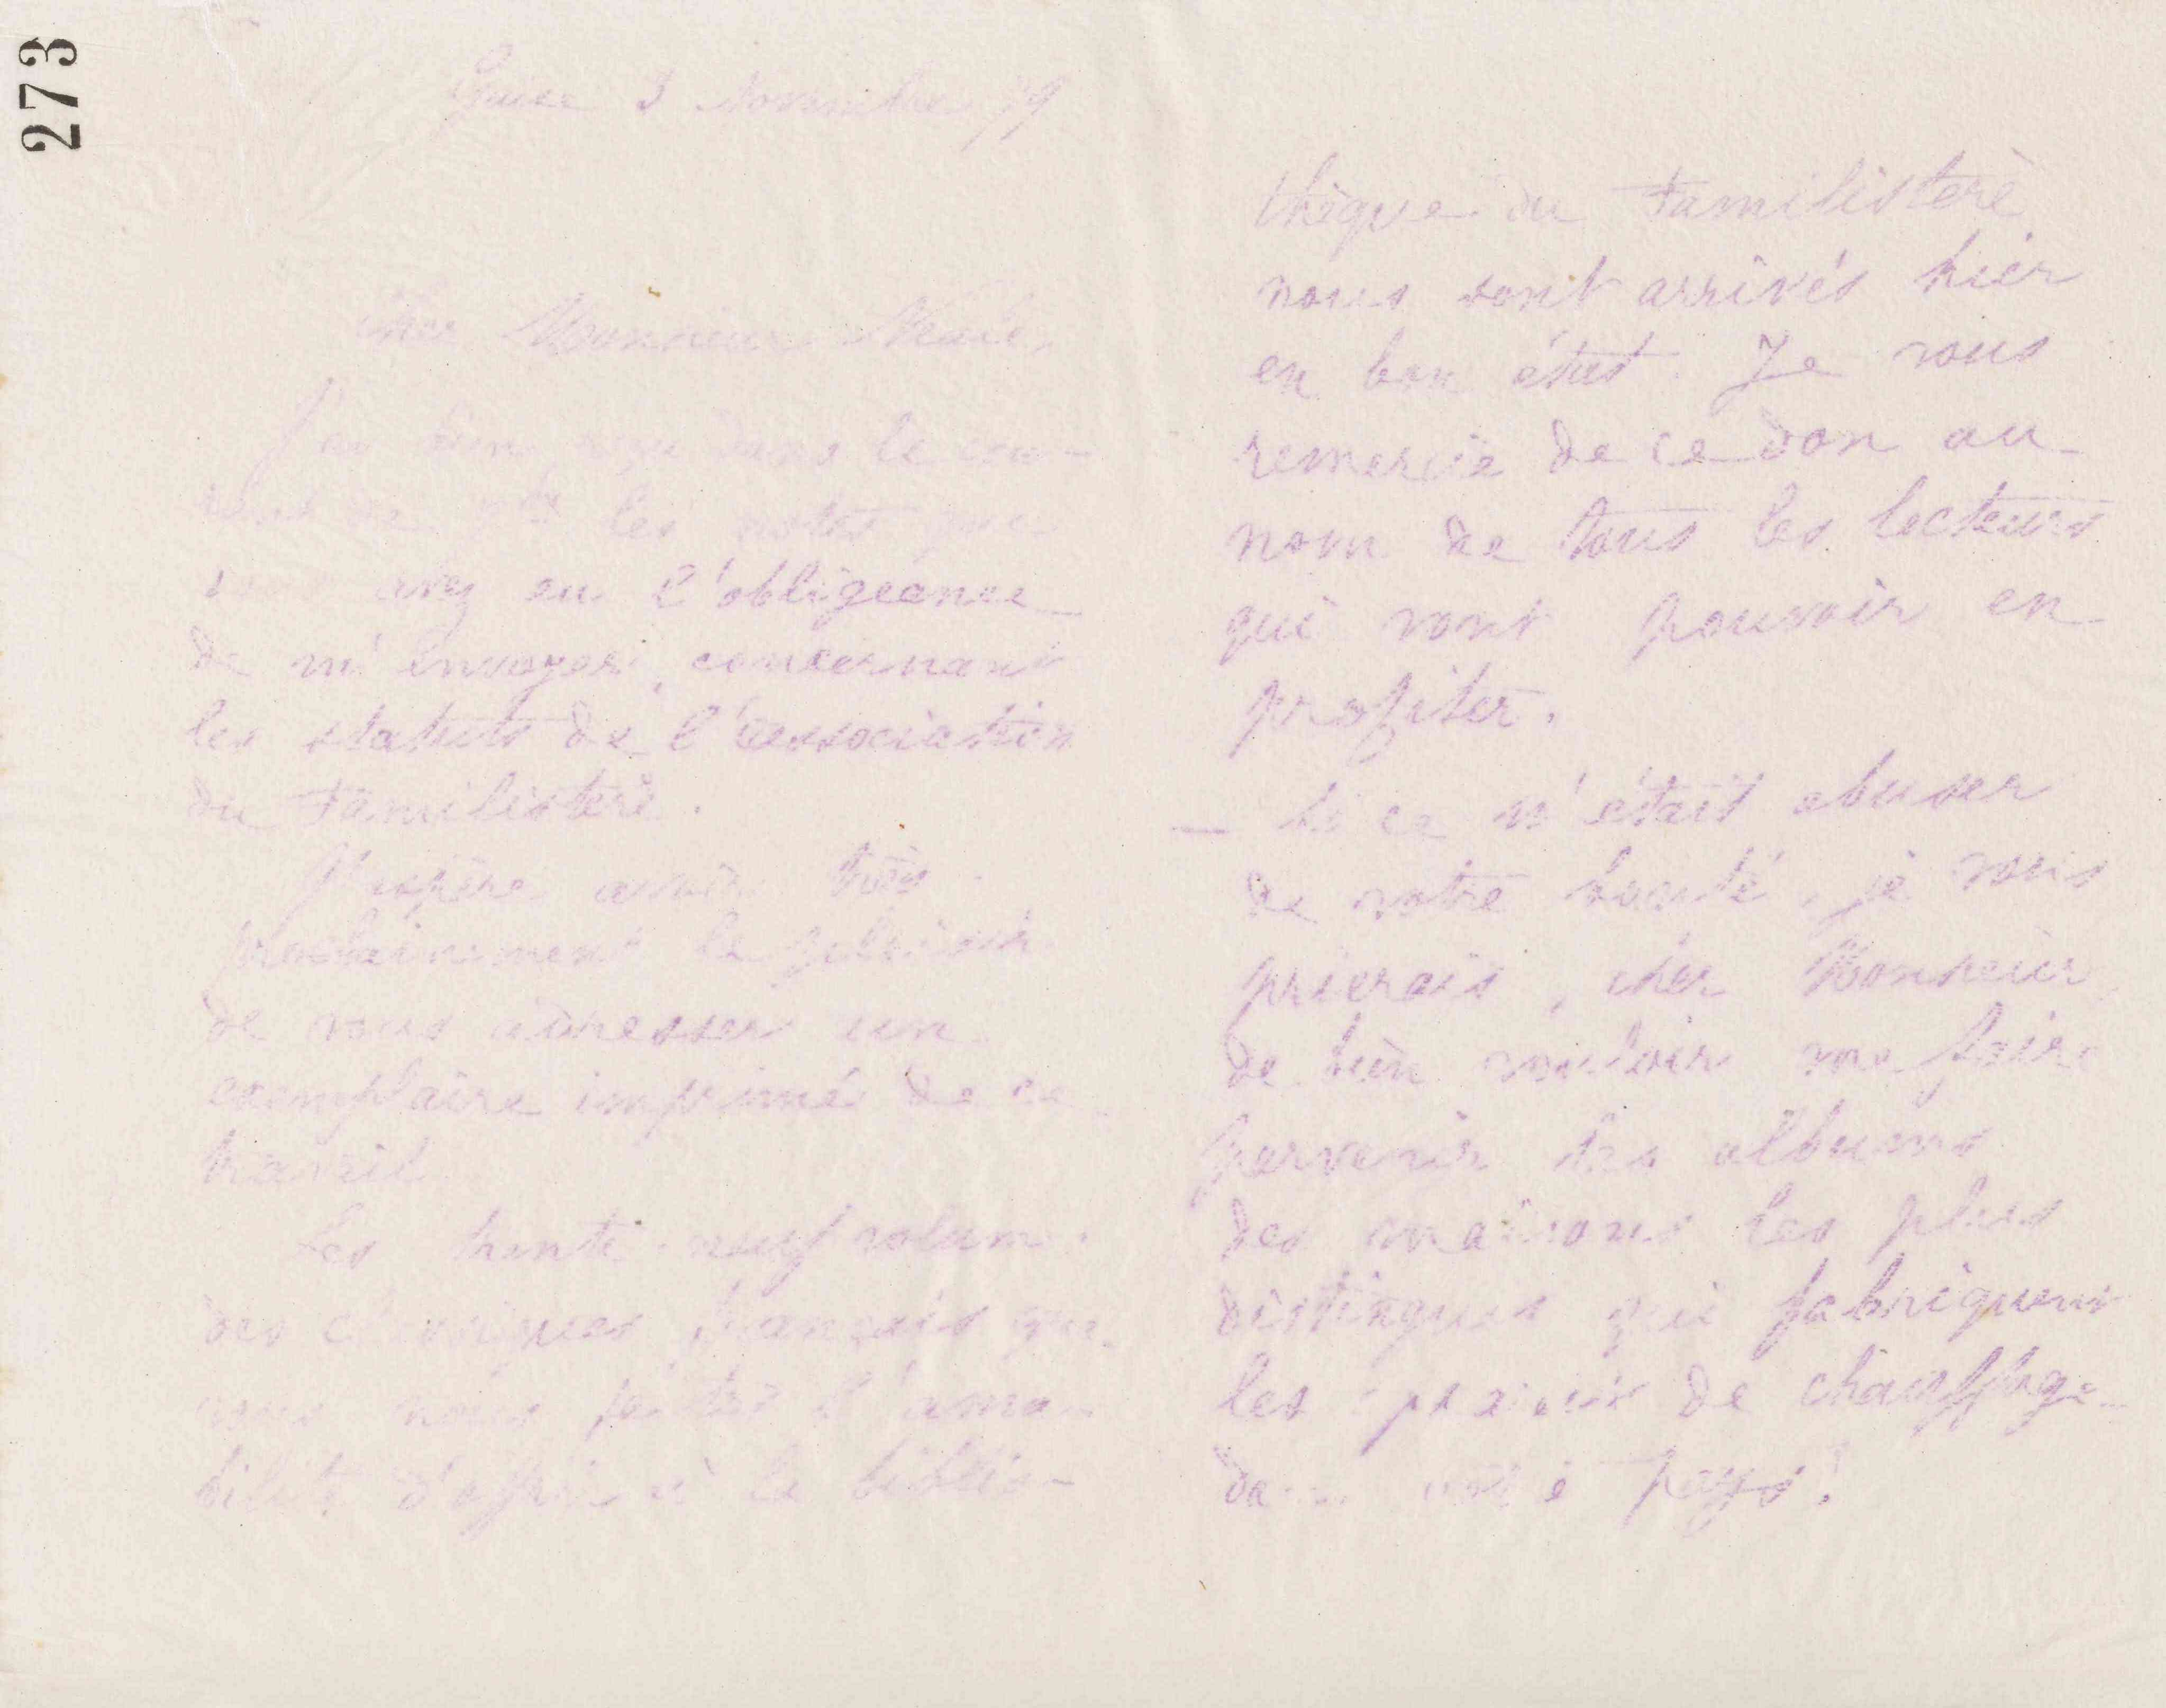 273
Guise 3 Novembre 79
Cher Monsieur Neale,
J'ai bien reçu dans le cou-
rant de les notes que
avez eu l'obligeance
de m'envoyer, concernant
les statuts de l'association
du Familistère.
J'espère avoir très
prochainement le plaisir
de vous adresser un
exemplaire imprimé de ce
travail
Les trente-neuf volum.
des classiques français que
vous nous faites l'ama-
bilité d'offrir à la biblio-
thèque du Familistère
nous sont arrivés hier
en bon état. Je vous
remercie de ce don au
nom de tous les lecteurs
qui vont pouvoir en
profiter.
— Si ce n'était abuser
de votre bonté, je vous
prierais, cher Monsieur
de bien vouloir me faire
parvenir les albums
des maisons les plus
distingues qui fabriquent
les de chauffage
dans votre pays!